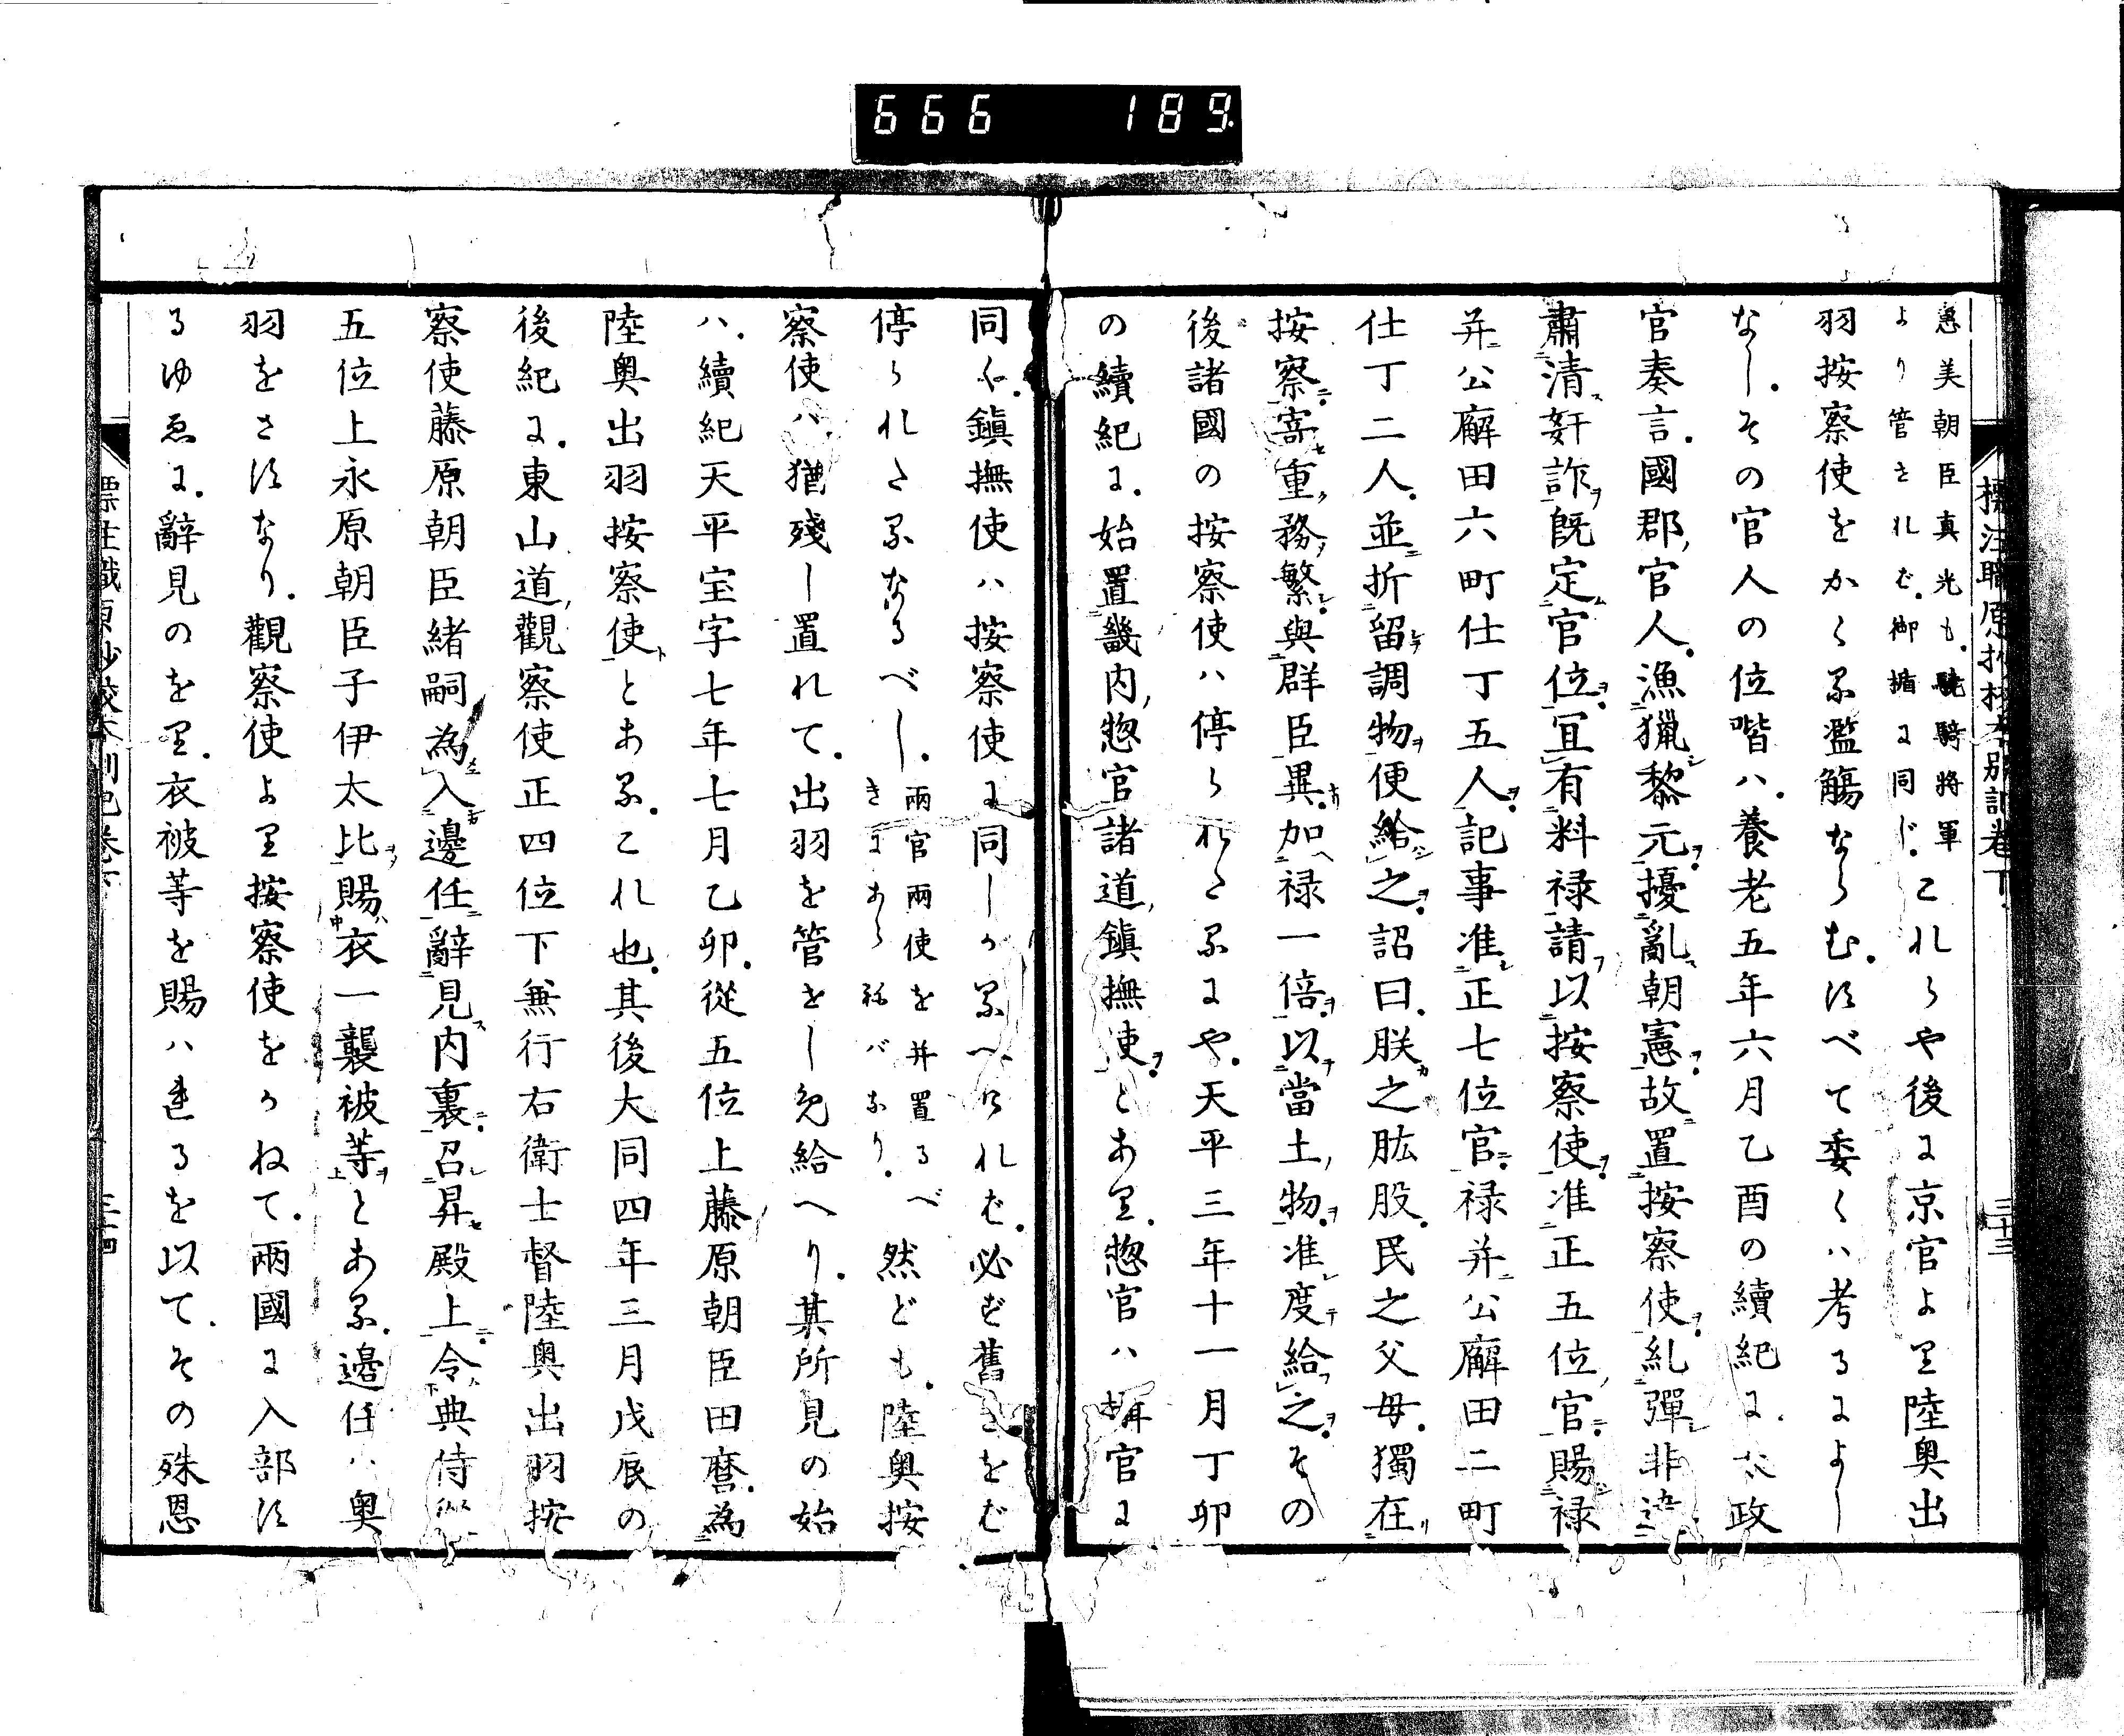 666 189
標注職原抄校本別記卷下 三十三
惠美朝臣真光も、驍騎將軍
より管されば、御楯に同じ、
これらや後に京官より陸奥出
羽按察使をかくる濫觴ならむ、すべて委くハ考るによし
なし、その官人の位階ハ、養老五年六月乙酉の續紀に、太政
官奏言、國郡官人、漁獵黎元擾亂朝憲、故置按察使、糺彈非違、
肅清奸詐、既定官位、宜有料禄、請以按察使、准正五位官、賜禄
并公廨田六町仕丁五人、記事准正七位官、禄并公廨田二町
仕丁二人、並折留調物、便給之、詔曰、朕之肱股、民之父母、獨在
按察、寄重務繁、與群臣異、加禄一倍、以當土物、准度給之、その
後諸國の按察使ハ停られたるにや、天平三年十一月丁卯
の續紀に、始置畿内惣官諸道鎮撫使とあり、惣官ハ攝官に
同く、鎮撫使ハ按察使に同じかるべければ、必ず舊きをば
停られたるなるべし、
兩官兩使を并置るべ
きにあらねバなり、
然ども、陸奥按
察使ハ、猶殘し置れて、出羽を管をしめ給へり、其所見の始
ハ、續紀天平宝字七年七月乙卯、從五位上藤原朝臣田麿、為
陸奥出羽按察使とある、これ也、其後大同四年三月戊辰の
後紀に、東山道觀察使正四位下兼行右衛士督陸奥出羽按
察使藤原朝臣緒嗣、為入邊任辭見内裏、召昇殿上、令典侍從
五位上永原朝臣子伊太比賜衣一襲被等とある、邊任ハ奥
羽をさすなり、觀察使より按察使をかねて、兩國に入部す
るゆゑに、辭見のをり、衣被等を賜ハれるを以て、その殊恩
標注職原抄校本別記卷下 三十四